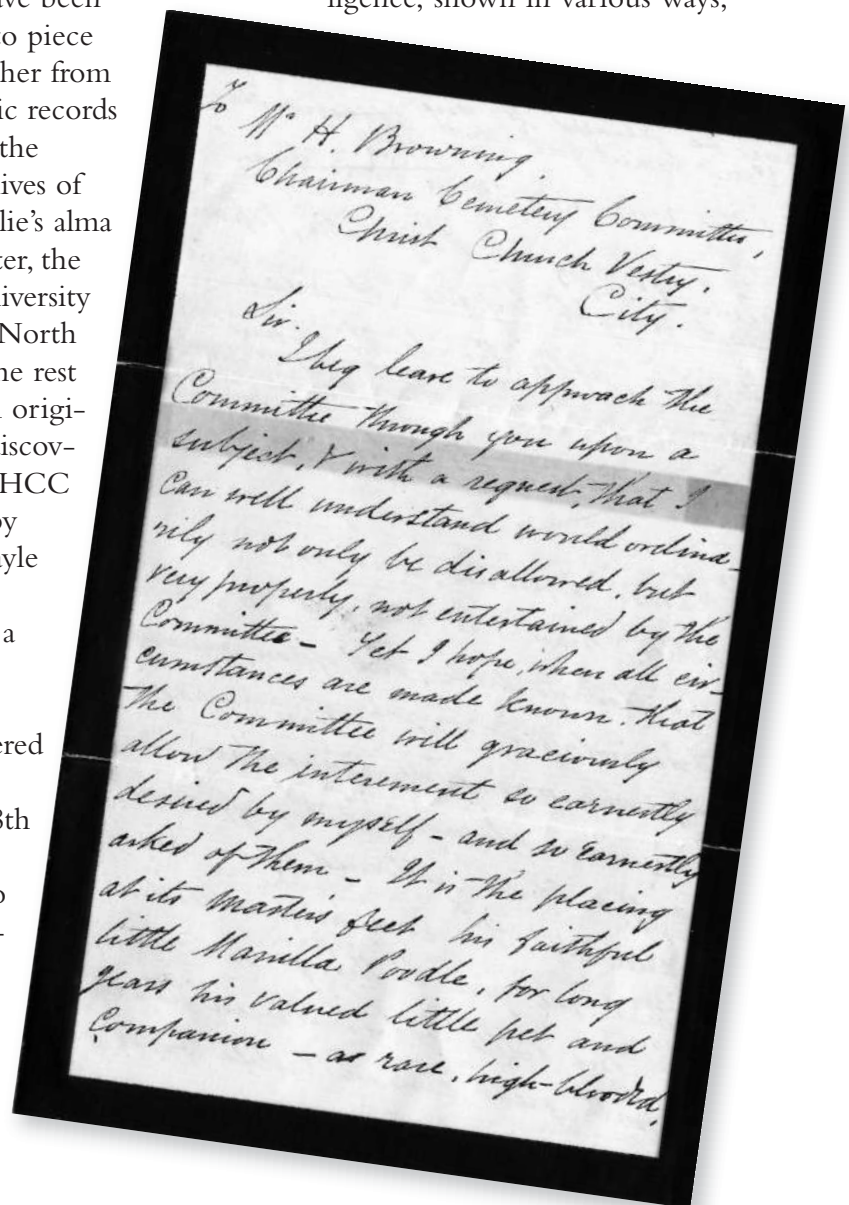 ave been
to piece
ther from
ic records
the
ives of
lie's alma
ter, the
niversity
North
he rest
origi-
iscov-
HCC
by
ayle
a
ered
8th
o
-
ligence, shown in various ways,
To Mr H. Browning.
Chairman Cemetery Committee,
Christ Church Vestry.
City.
Sir.
I beg leave to approach the
Committee through you upon a
subject, & with a request, that I
can well understand would ordina-
rily not only be disallowed, but
very properly, not entertained by the
Committee - Yet I hope, when all cir-
cumstances are made known, that
the Committee will graciously
allow the interement so earnestly
desired by myself - and so earnestly
asked of them - It is the placing
at its master's feet his faithful
little Manilla Poodle, for long
years his valued little pet and
companion - as rare, high-blooded,